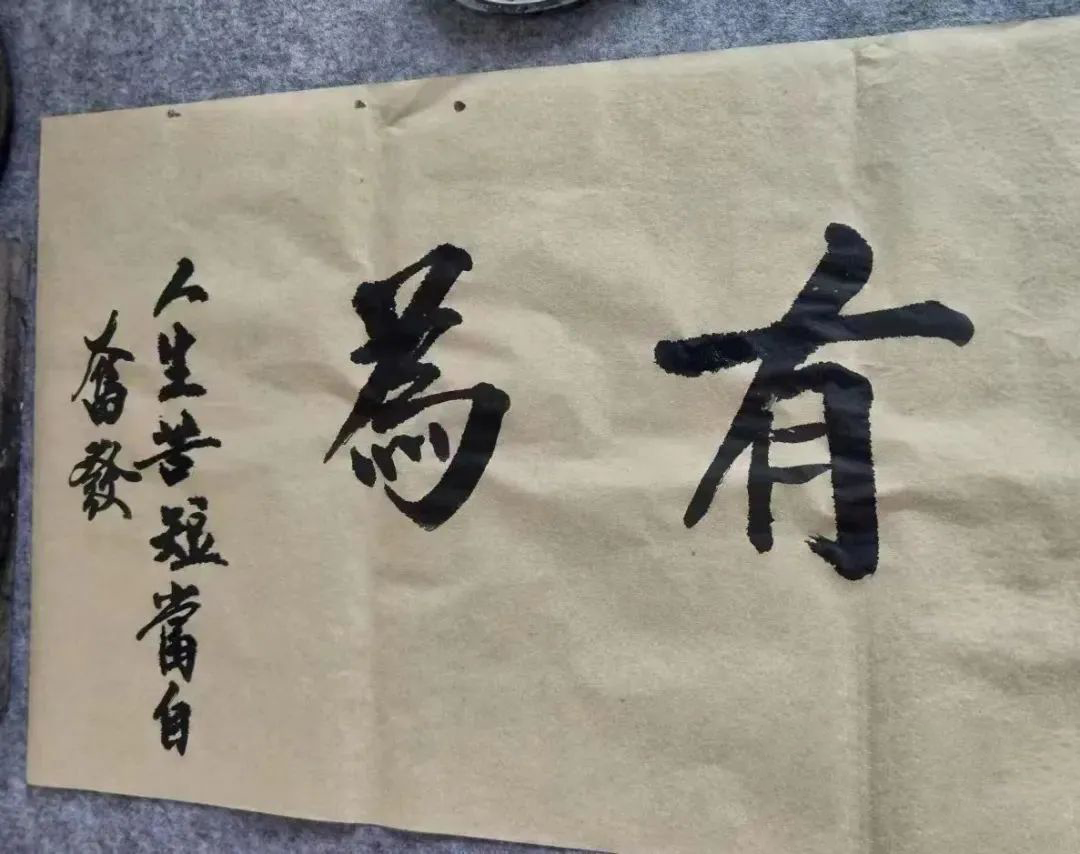 有為
人生苦短當自
奮發